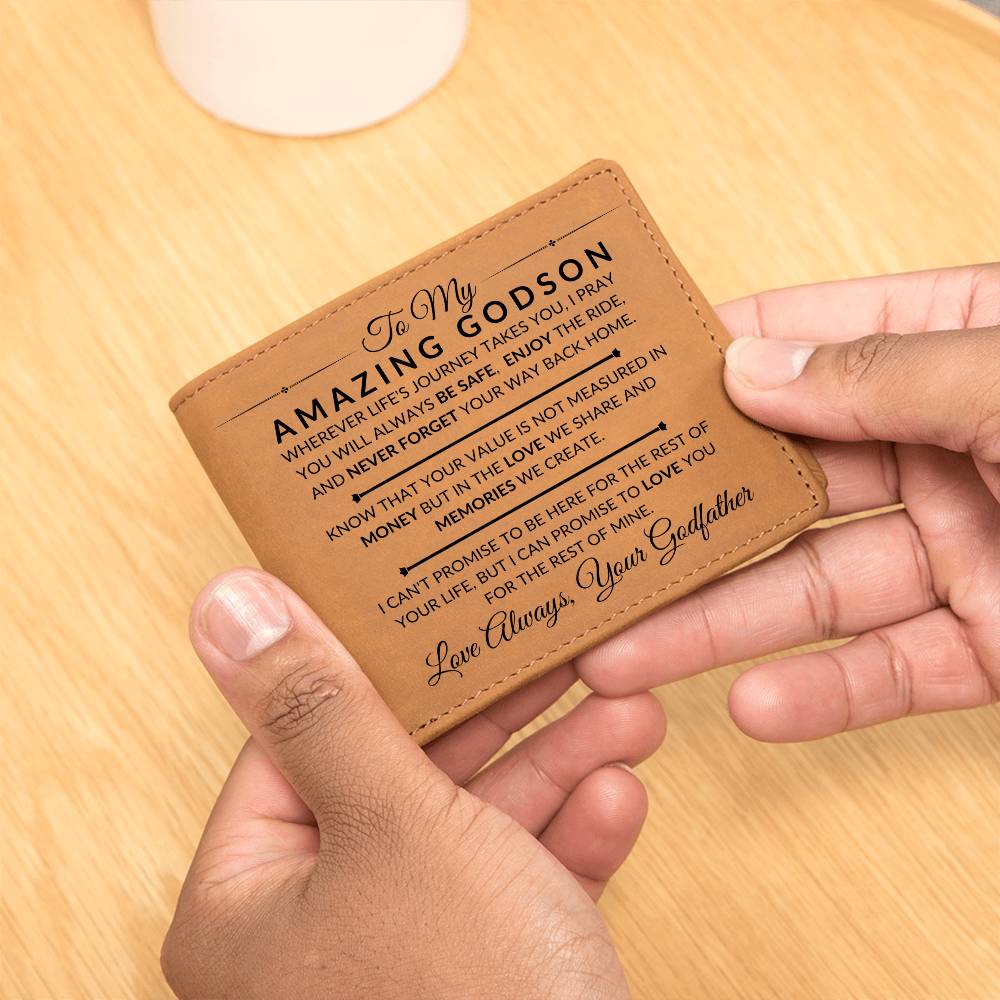 To My
AMAZING GODSON
WHEREVER LIFE'S JOURNEY TAKES YOU, I PRAY
YOU WILL ALWAYS BE SAFE, ENJOY THE RIDE,
AND NEVER FORGET YOUR WAY BACK HOME.
KNOW THAT YOUR VALUE IS NOT MEASURED IN
MONEY BUT IN THE LOVE WE SHARE AND
MEMORIES WE CREATE.
I CAN'T PROMISE TO BE HERE FOR THE REST OF
YOUR LIFE, BUT I CAN PROMISE TO LOVE YOU
FOR THE REST OF MINE.
Love Always, Your Godfather